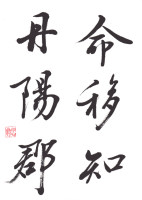 命移知
丹陽郡